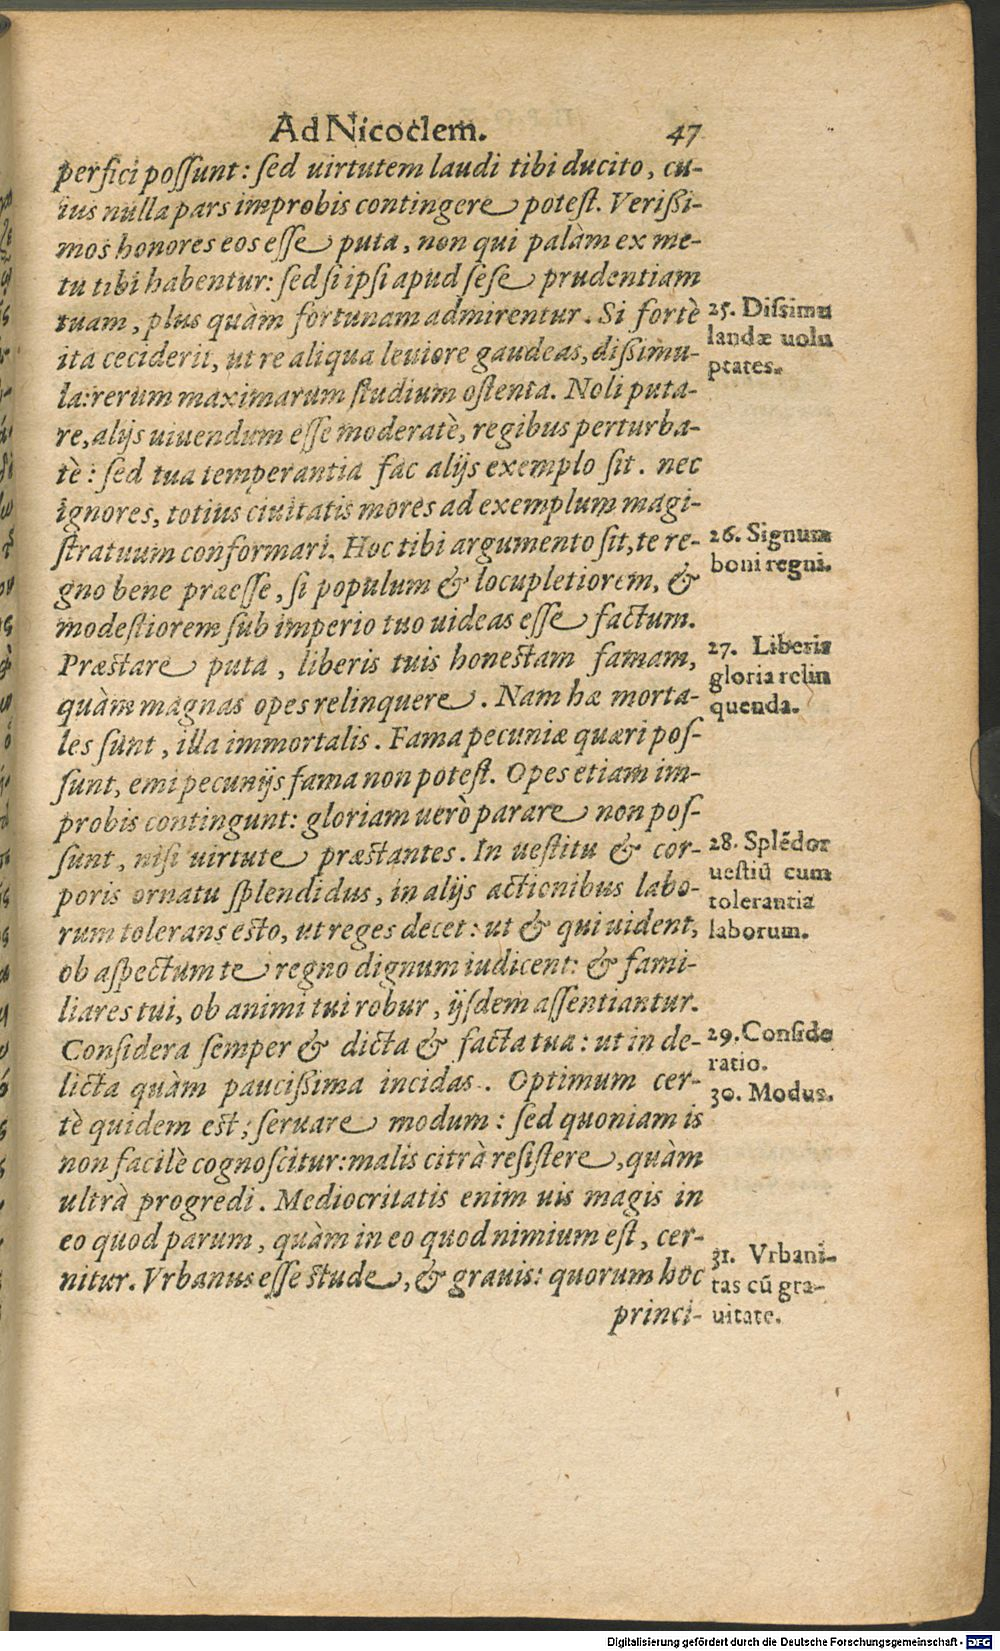 Ad Nicoclem. 47
perfici possunt: sed uirtutem laudi tibi ducito, cu-
ius nulla pars improbis contingere potest. Verißi-
mos honores eos esse puta, non qui palàm ex me-
tu tibi habentur: sed si ipsi apud sese prudentiam
tuam, plus quàm fortunam admirentur. Si fortè
ita ceciderit, ut re aliqua leuiore gaudeas, dißimu-
la: rerum maximarum studium ostenta. Noli puta-
re, alijs uiuendum esse moderatè, regibus perturba-
tè: sed tua temperantia fac alijs exemplo sit. nec
ignores, totius ciuitatis mores ad exemplum magi-
stratuum conformari. Hoc tibi argumento sit, te re-
gno bene præesse, si populum & locupletiorem, &
modestiorem sub imperio tuo uideas esse factum.
Præstare puta, liberis tuis honestam famam,
quàm magnas opes relinquere. Nam hæ morta-
les sunt, illa immortalis. Fama pecuniæ quæri pos-
sunt, emi pecunijs fama non potest. Opes etiam im-
probis contingunt: gloriam uerò parare non pos-
sunt, nisi uirtute præstantes. In uestitu & cor-
poris ornatu splendidus, in alijs actionibus labo-
rum tolerans esto, ut reges decet: ut & qui uident,
ob aspectum te regno dignum iudicent: & fami-
liares tui, ob animi tui robur, ijsdem assentiantur.
Considera semper & dicta & facta tua: ut in de-
licta quàm paucißima incidas. Optimum cer-
tè quidem est, seruare modum: sed quoniam is
non facilè cognoscitur: malis citrà resistere, quàm
ultrà progredi. Mediocritatis enim uis magis in
eo quod parum, quàm in eo quod nimium est, cer-
nitur. Vrbanus esse stude, & grauis: quorum hoc
princi-
25. Dißimu
landæ uolu
ptates.
26. Signum
boni regni.
27. Liberis
gloria relin
quenda.
28. Splēdor
uestiū cum
tolerantia
laborum.
29. Conside
ratio.
30. Modus.
31. Vrbani-
tas cū gra-
uitate.
Digitalisierung gefördert durch die Deutsche Forschungsgemeinschaft - DFG